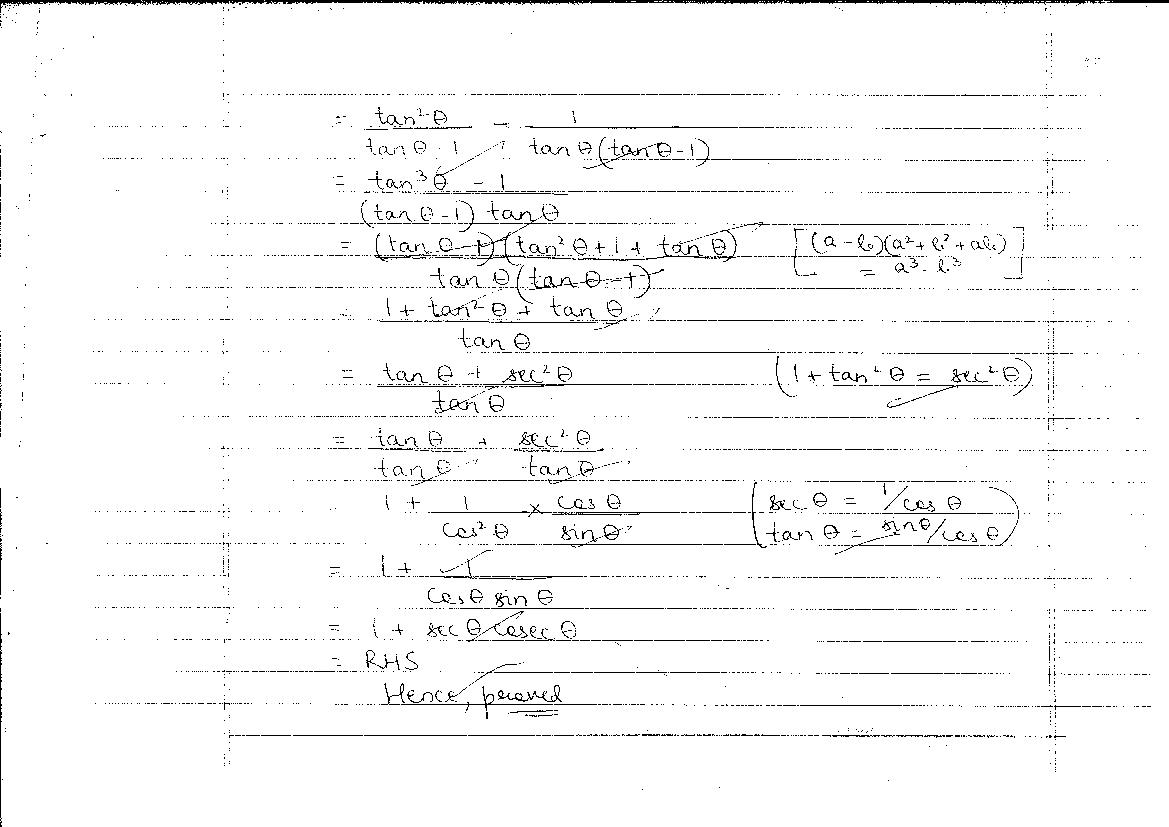 = tan²θ / tan θ - 1 - 1 / tan θ (tan θ - 1)
= tan³θ - 1 / (tan θ - 1) tan θ
= (tan θ - 1) (tan²θ + 1 + tan θ) / tan θ (tan θ - 1) [(a - b)(a² + b² + ab) = a³ - b³]
= 1 + tan²θ + tan θ / tan θ
= tan θ + sec²θ / tan θ (1 + tan²θ = sec²θ)
= tan θ / tan θ + sec²θ / tan θ
1 + 1 / cos²θ × cos θ / sin θ (sec θ = 1/cos θ tan θ = sin θ/cos θ)
= 1 + 1 / cos θ sin θ
= 1 + sec θ cosec θ
= RHS
Hence, proved